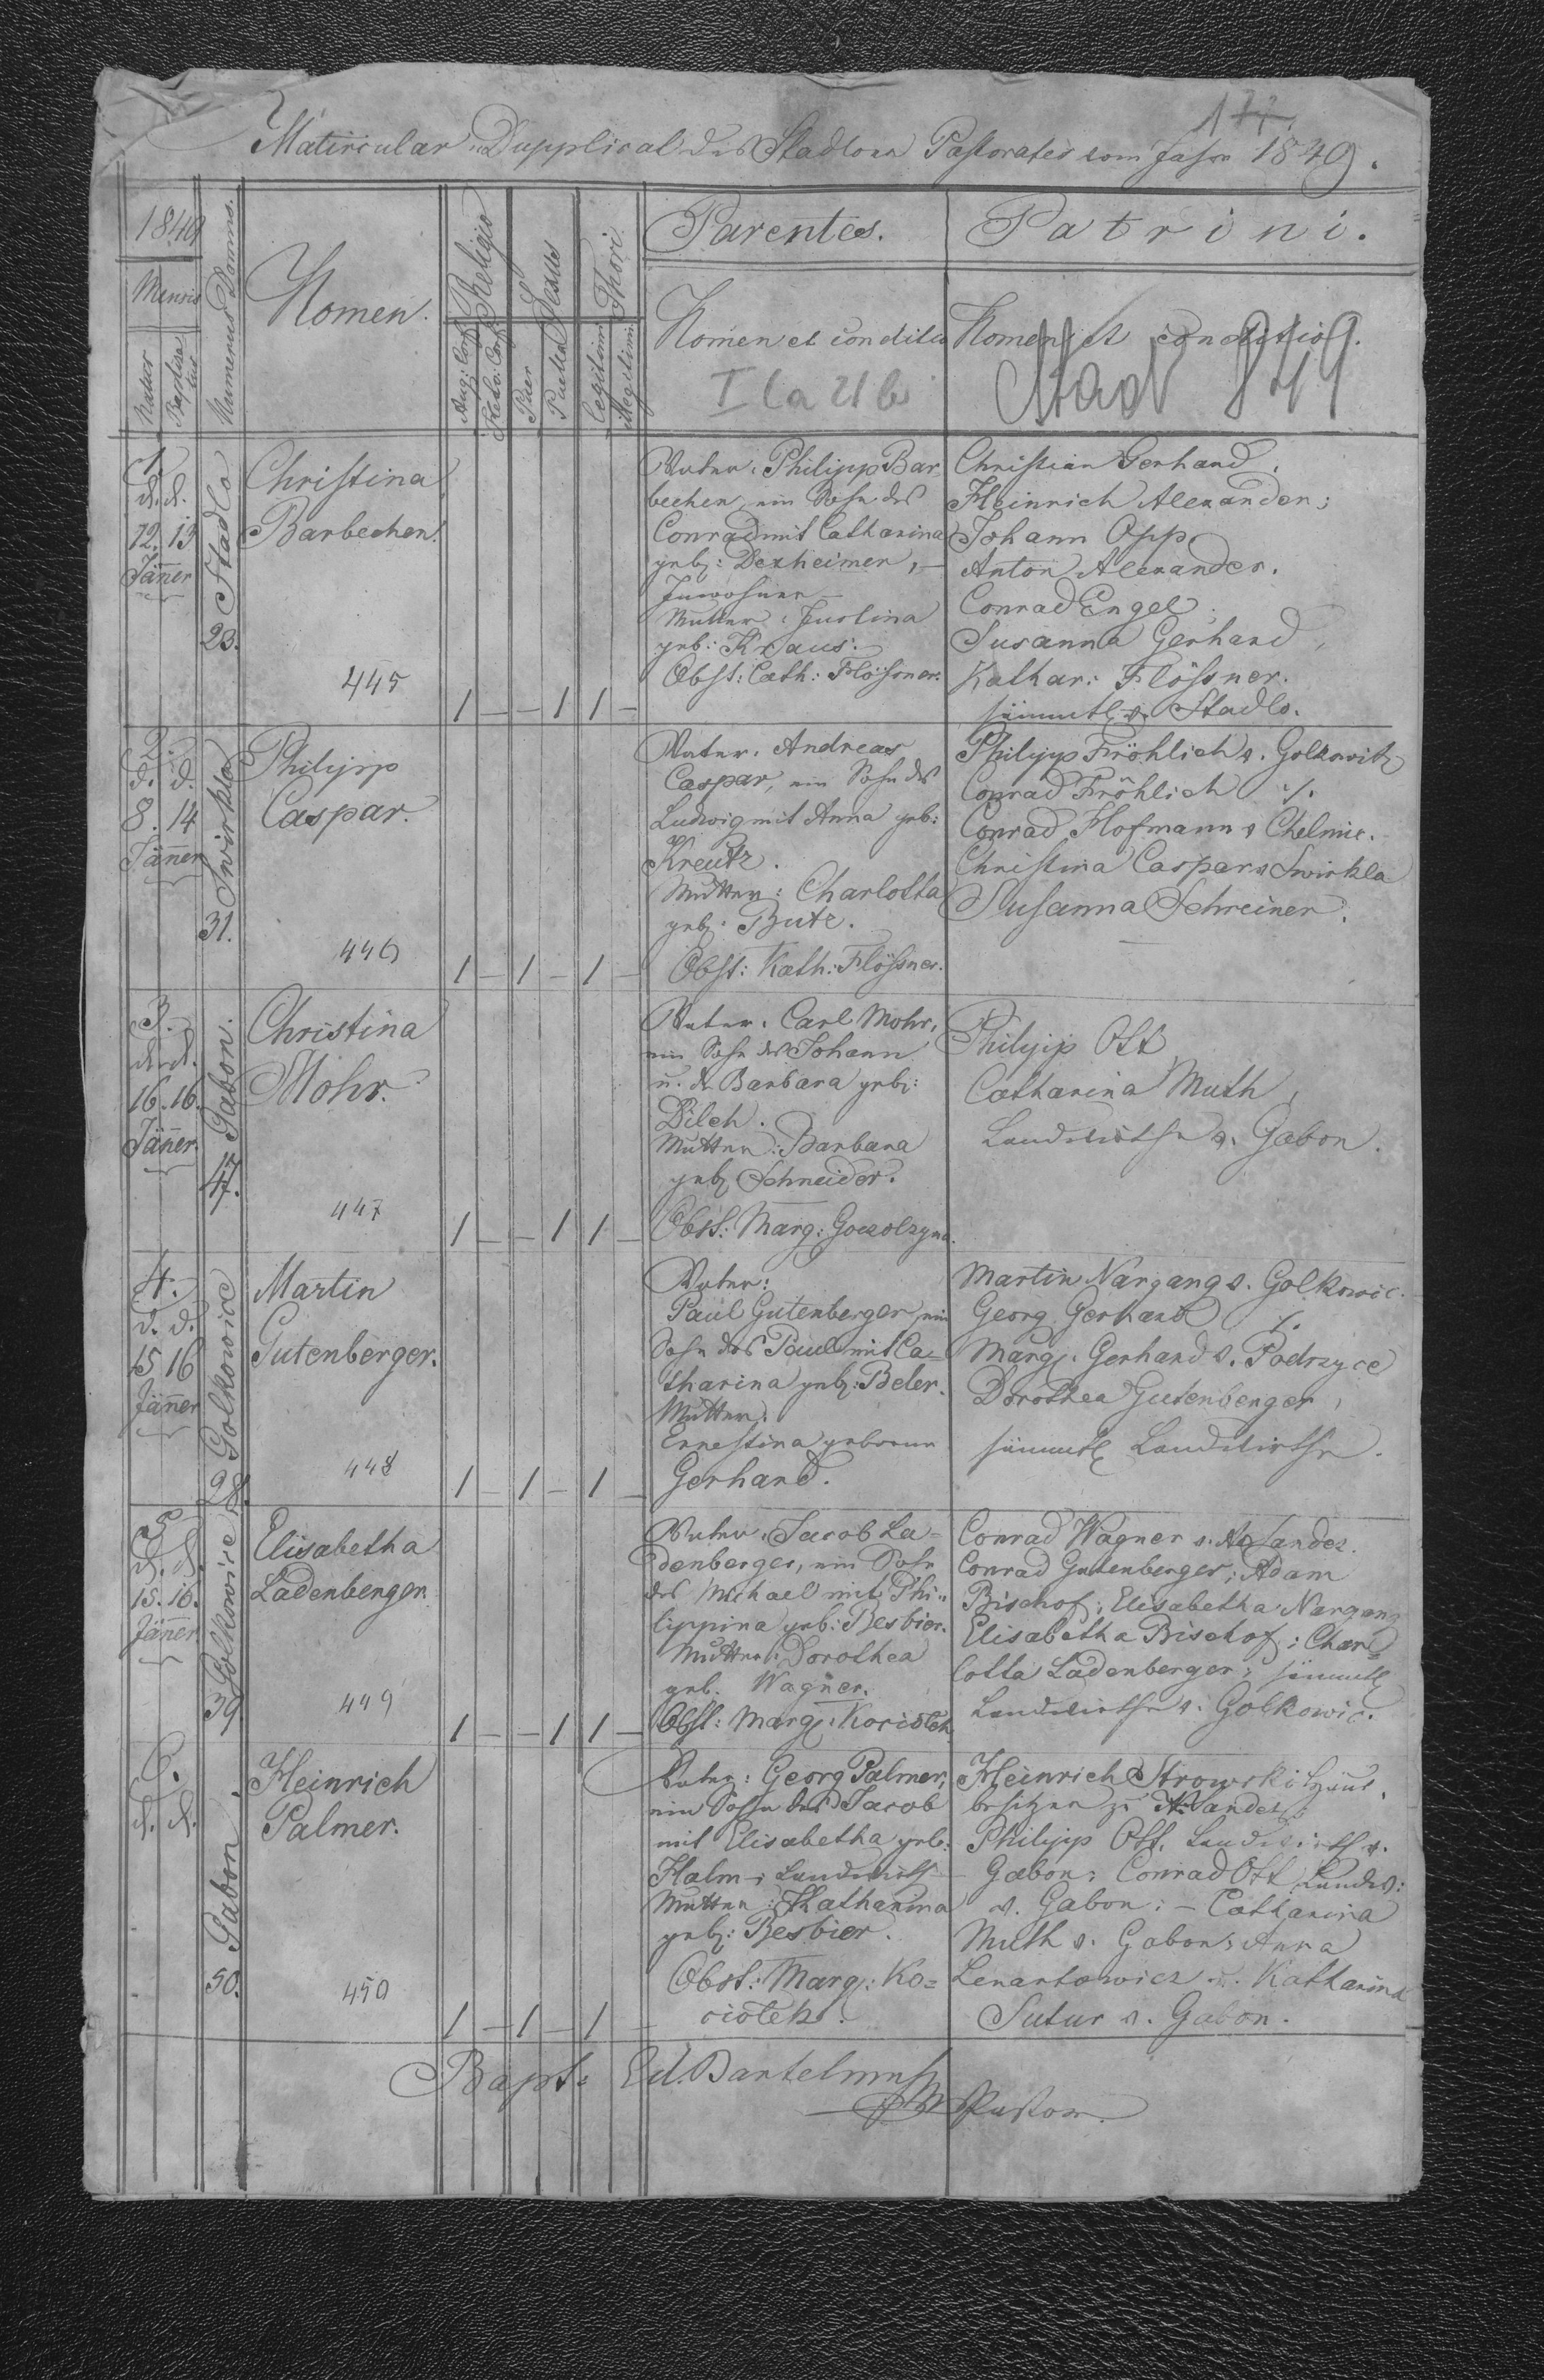 177.
Matricular-Dupplicat des Stadloer Pastorates vom Jahre 1849.
1849
Mensis
Natus
Baptisatus
Numerus Domus.
Nomen.
Religio
Aug: Conf.
Helv: Conf.
Sexus
Puer
Puella
Thori.
Legitimi
Illegitimi
Parentes.
Nomen et conditio
Patrini.
Nomen et conditio.
Stad 849
1.
d. d.
12. 13
Jänner
Stadlo
23.
Christina
Barbechen.
445
1 – – 1 1 –
Vater: Philipp Bar,
bechen, ein Sohn des
Conrad mit Catharina
geb: Dexheimer, –
Inwohner –
Mutter: Justina
geb: Kraus.
Obst: Cath: Flössner.
Christian Gerhard,
Heinrich Alexander;
Johann Opp,
Anton Alexander.
Conrad Engel,
Susanna Gerhard,
Kathar: Flössner.
sämmtl. v. Stadlo.
2.
d. d.
8. 14
Jänner
Swirkla
31.
Philipp
Caspar.
446
1 – 1 – 1 –
Vater: Andreas
Caspar, ein Sohn des
Ludwig mit Anna geb:
Kreutz.
Mutter: Charlotta
geb. Butz.
Obst: Kath: Flössner.
Philipp Fröhlich v. Golkowitz
Conrad Fröhlich ./.
Conrad Hofmann v Chelmic.
Christina Caspar v Swirkla
Susanna Schreiner.
3.
d. d.
16. 16.
Jänner.
Gabon.
47.
Christina
Mohr.
447
1 – – 1 1 –
Vater: Carl Mohr,
ein Sohn des Johann
u. d. Barbara geb:
Pilch.
Mutter: Barbara
geb. Schneider.
Obst: Marg:
Philipp Ott,
Catharina Muth,
Landwirthe v. Gabon.
4.
d. d.
15 16
Jänner
Golkowice
28.
Martin
Gutenberger.
448
1 – 1 – 1 –
Vater:
Paul Gutenberger, ein
Sohn des Paul mit Ca=
tharina geb: Beler.
Mutter:
Ernestina geborne
Gerhard.
Martin Nargang v. Golkowic.
Georg Gerhard ./.
Marg. Gerhard v. Podrzyce
Dorothea Gutenberger,
sämmtl Landwirthe.
5.
d. d.
15. 16.
Jänner
Golkowice
39
Elisabetha
Ladenberger.
449
1 – – 1 1 –
Vater: Jacob La=
denberger, ein Sohn
des Michael mit Phi=
lippina geb: Besbier.
Mutter: Dorothea
geb. Wagner.
Obst: Marg:
Conrad Wagner v. Sandez.
Conrad Gutenberger; Adam
Bischof; Elisabetha Nargang
Elisabetha Bischof; Char=
lotta Ladenberger; sämmtl
Landwirthe v. Golkowic.
6.
d. d.
Gabon.
50.
Heinrich
Palmer.
450
1 – 1 – 1 –
Vater: Georg Palmer,
ein Sohn des Jacob
mit Elisabetha geb:
Halm; Landwirth
Mutter: Katharina
geb: Besbier.
Obst: Marg: Ko=
ciolek.
Heinrich Strowski Haus,
besitzer zu N. Sandez;
Philipp Ott, Landwirth v.
Gabon; Conrad Ott Landw:
v. Gabon; – Catharina
Muth v. Gabon; Anna
Lenartowicz u. Katharina
Sutur v. Gabon.
Bapt: Ed. Bartelmuss
Pastor.